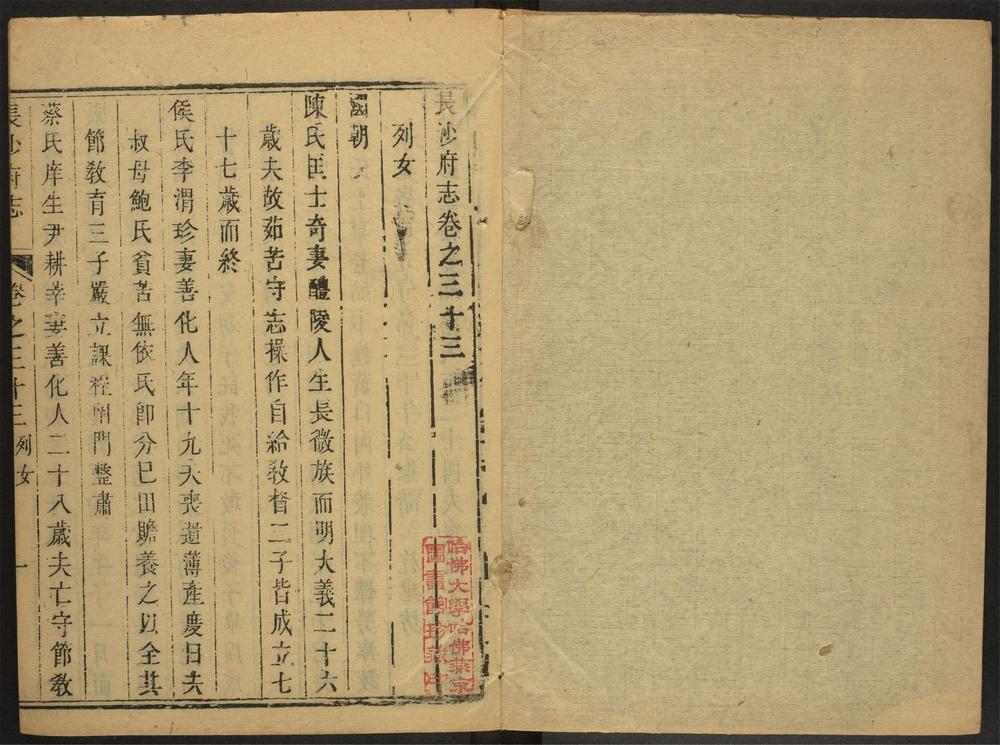 長沙府志卷之三十三
列女
國朝
陳氏匡士奇妻醴陵人生長微族而明大義二十六
歲夫故茹苦守志操作自給教督二子皆成立七
十七歲而終
侯氏李渭珍妻善化人年十九夫喪遺薄產慶日夫
叔母鮑氏貧苦無依氏卽分已田贍養之以全其
節教育三子嚴立課程閨門整肅
蔡氏庠生尹耕莘妻善化人二十八歲夫亡守節教
長沙府志
卷之三十三
列女
一
哈佛大學哈佛燕京
圖書館珍藏印